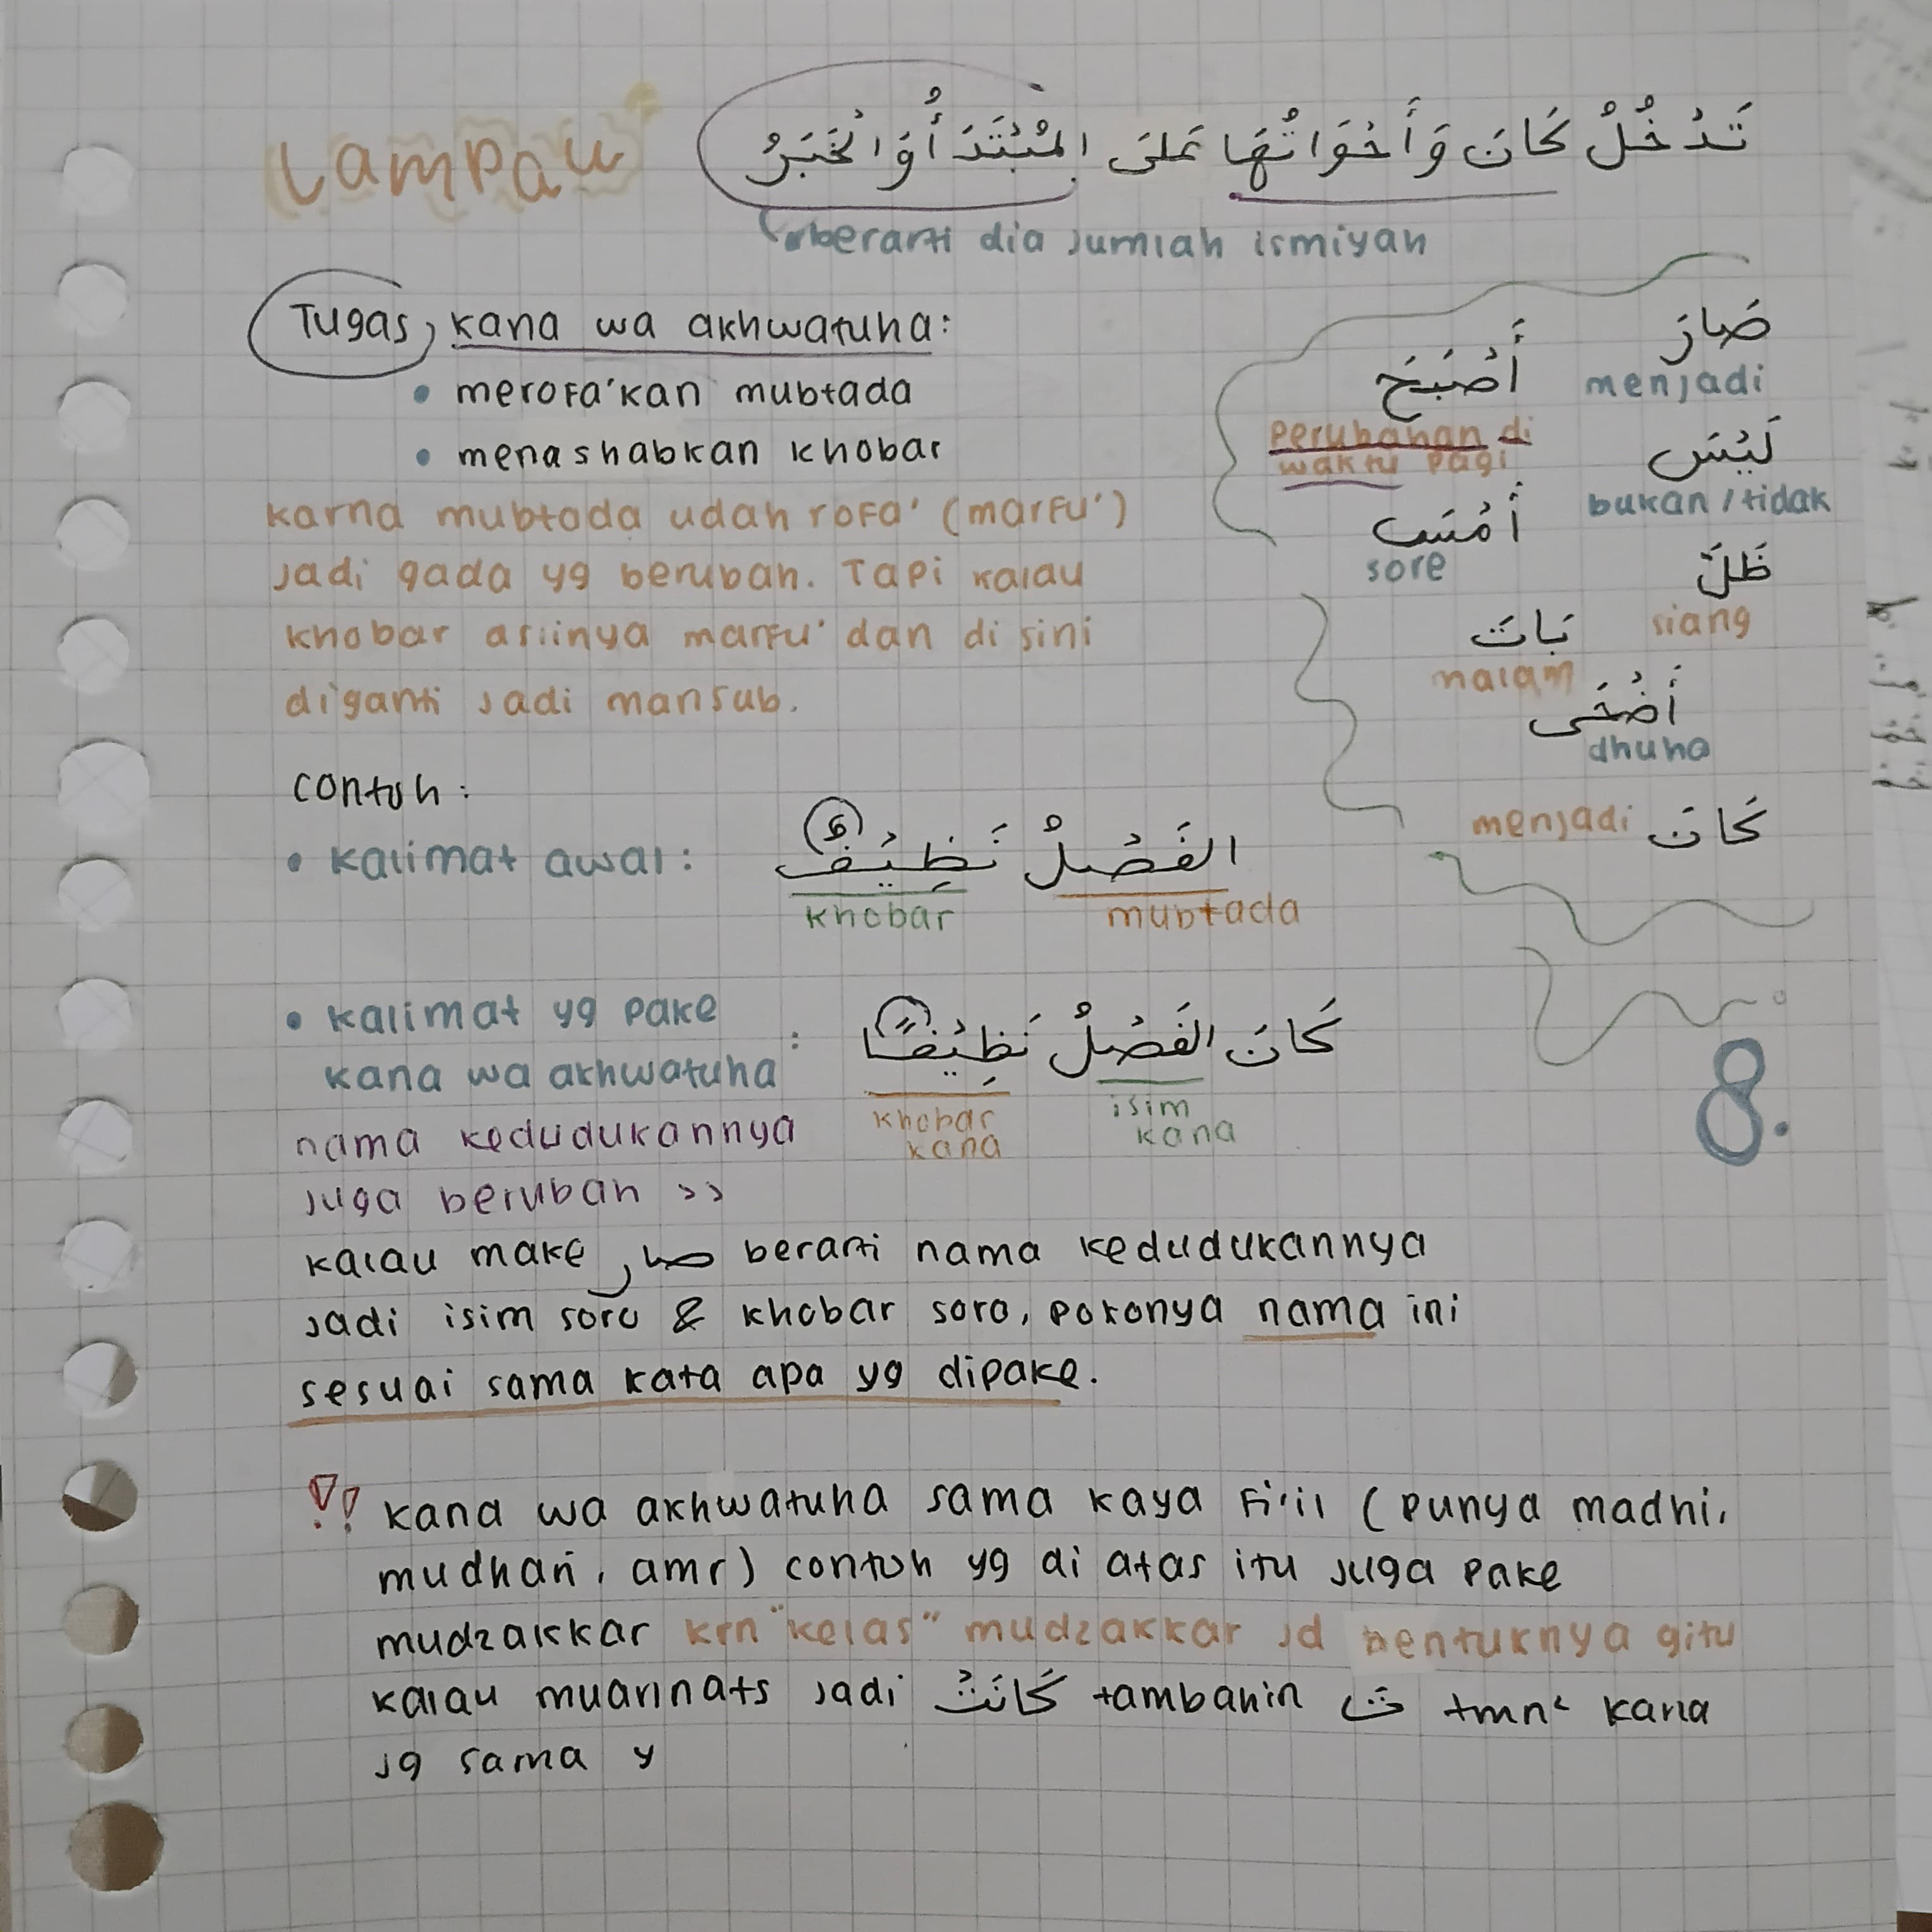 Lampau
تَدْخُلُ كَانَ وَأَخَوَاتُهَا عَلَى الْمُبْتَدَأُ وَالْخَبَرُ
berarti dia jumlah ismiyah
Tugas, kana wa akhwatuha:
• merofa'kan mubtada
• menashabkan khobar
karna mubtada udah rofa' (marfu')
jadi gada yg berubah. Tapi kalau
khobar aslinya marfu' dan di sini
diganti jadi mansub.
صَارَ
menjadi
أَصْبَحَ
perubahan di
waktu pagi
لَيْسَ
bukan / tidak
أَمْسَى
sore
ظَلَّ
siang
بَاتَ
malam
أَضْحَى
dhuha
كَانَ menjadi
contoh :
• kalimat awal : الفَصْلُ نَظِيْفٌ
khobar mubtada
• kalimat yg pake
kana wa akhwatuha : كَانَ الفَصْلُ نَظِيْفًا
khobar kana
isim kana
nama kedudukannya
juga berubah >>
8.
kalau make صار berarti nama kedudukannya
jadi isim soro & khobar soro, pokonya nama ini
sesuai sama kata apa yg dipake.
!! kana wa akhwatuha sama kaya fi'il (punya madhi,
mudhari, amr) contoh yg di atas itu juga pake
mudzakkar krn "kelas" mudzakkar jd bentuknya gitu
kalau muannats jadi كَانَتْ tambahin تْ tmn² kana
jg sama y